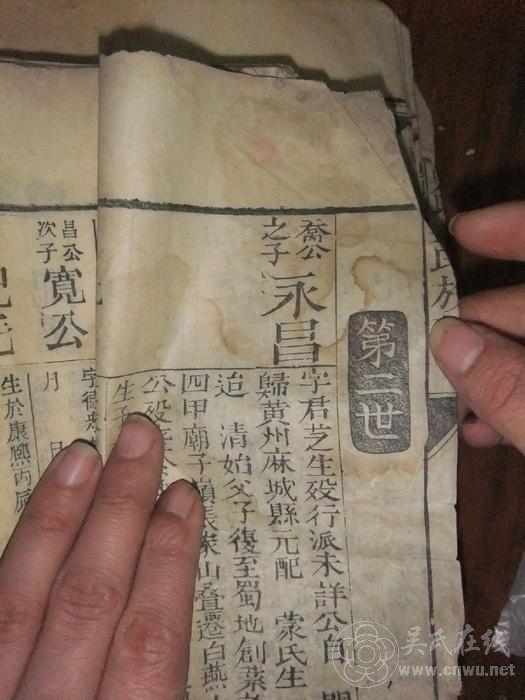 氏族
第二世
喬公之子 永昌
字君芝生殁行派未詳公自
歸黃州麻城縣元配 蒙氏生
迨 清始父子復至蜀地創業
四甲廟子嶺張家山叠遷白燕
公殁
生子
昌公次子 寬公
字得
月 月
生於康熙丙辰
吴氏在线
www.cnwu.net